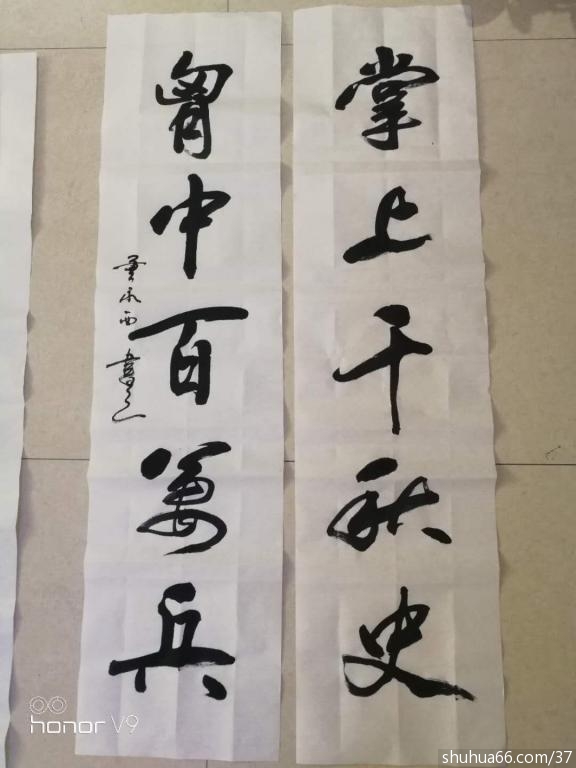 掌上千秋史
胷中百萬兵
永西書
honor V9
shuhua66.com/37